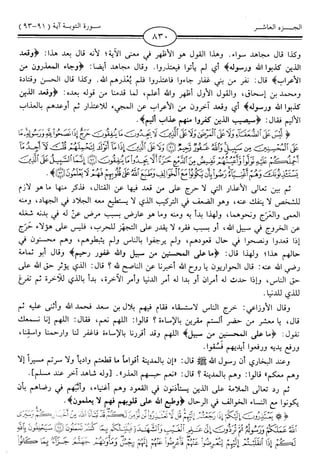 الجـــزء العاشـــر
سـورة التوبـة آية (٩١-٩٣)
٨٣٠
وكذا قال مجاهد سواء. وهذا القول هو الأظهر في معنى الآية؛ لأنه قال بعد هذا: ﴿وقعد
الذين كذبوا الله ورسوله﴾ أي لم يأتوا فيعتذروا. وقال مجاهد أيضا: ﴿وجاء المعذرون من
الأعراب﴾ قال: نفر من بني غفار جاءوا فاعتذروا فلم يُعذرهم الله. وكذا قال الحسن وقتادة
ومحمد بن إسحاق، والقول الأول أظهر والله أعلم، لما قدمنا من قوله بعده: ﴿وقعد الذين
كذبوا الله ورسوله﴾ أي وقعد آخرون من الأعراب عن المجيء للاعتذار ثم أوعدهم بالعذاب
الأليم فقال: ﴿سيصيب الذين كفروا منهم عذاب أليم﴾.
﴿لَّيْسَ عَلَى الضُّعَفَاءِ وَلَا عَلَى الْمَرْضَىٰ وَلَا عَلَى الَّذِينَ لَا يَجِدُونَ مَا يُنفِقُونَ حَرَجٌ إِذَا نَصَحُوا لِلَّهِ وَرَسُولِهِ مَا
عَلَى الْمُحْسِنِينَ مِن سَبِيلٍ وَاللَّهُ غَفُورٌ رَّحِيمٌ وَلَا عَلَى الَّذِينَ إِذَا مَا أَتَوْكَ لِتَحْمِلَهُمْ قُلْتَ لَا أَجِدُ مَا
أَحْمِلُكُمْ عَلَيْهِ تَوَلَّوا وَّأَعْيُنُهُمْ تَفِيضُ مِنَ الدَّمْعِ حَزَنًا أَلَّا يَجِدُوا مَا يُنفِقُونَ إِنَّمَا السَّبِيلُ عَلَى الَّذِينَ
يَسْتَأْذِنُونَكَ وَهُمْ أَغْنِيَاءُ رَضُوا بِأَن يَكُونُوا مَعَ الْخَوَالِفِ وَطَبَعَ اللَّهُ عَلَىٰ قُلُوبِهِمْ فَهُمْ لَا يَعْلَمُونَ﴾.
ثم بين تعالى الأعذار التي لا حرج على من قعد فيها عن القتال، فذكر منها ما هو لازم
للشخص لا ينفك عنه، وهو الضعف في التركيب الذي لا يستطيع معه الجلاد في الجهاد، ومنه
العمى والعَرَج ونحوهما، ولهذا بدأ به ومنه وما هو عارض بسبب مرض عنَّ له في بدنه شغله
عن الخروج في سبيل الله، أو بسبب فقره لا يقدر على التجهز للحرب، فليس على هؤلاء حَرَج
إذا قعدوا ونصحوا في حال قعودهم، ولم يرجفوا بالناس ولم يثبطوهم، وهم محسنون في
حالهم هذا؛ ولهذا قال: ﴿ما على المحسنين من سبيل والله غفور رحيم﴾ وقال أبو ثمامة
رضي الله عنه: قال الحواريون يا روح الله أخبرنا عن الناصح لله؟ قال: الذي يؤثر حق الله على
حق الناس، وإذا حدث له أمران أو بدا له أمر الدنيا وأمر الآخرة، بدأ بالذي للآخرة ثم تفرغ
للذي للدنيا.
وقال الأوزاعي: خرج الناس لاستسقاء فقام فيهم بلال بن سعد فحمد الله وأثنى عليه ثم
قال، يا معشر من حضر ألستم مقرين بالإساءة؟ قالوا: اللهم نعم، فقال: اللهم إنا نسمعك
تقول: ﴿ما على المحسنين من سبيل﴾ اللهم وقد أقررنا بالإساءة فاغفر لنا وارحمنا واسقنا،
ورفع يديه ورفعوا أيديهم فَسُقوا.
وعند البخاري أن رسول الله ﷺ قال: «إن بالمدينة أقواماً ما قطعتم وادياً ولا سرتم مسيراً إلا
وهم معكم» قالوا: وهم بالمدينة؟ قال: «نعم حبسهم العذر». [وله شاهد آخر عند مسلم].
ثم رد تعالى الملامة على الذين يستأذنون في القعود وهم أغنياء، وأنَّبهم في رضاهم بأن
يكونوا مع النساء الخوالف في الرحال ﴿وطبع الله على قلوبهم فهم لا يعلمون﴾.
﴿يَعْتَذِرُونَ إِلَيْكُمْ إِذَا رَجَعْتُمْ إِلَيْهِمْ قُل لَّا تَعْتَذِرُوا لَن نُّؤْمِنَ لَكُمْ قَدْ نَبَّأَنَا اللَّهُ مِنْ أَخْبَارِكُمْ وَسَيَرَى
اللَّهُ عَمَلَكُمْ وَرَسُولُهُ ثُمَّ تُرَدُّونَ إِلَىٰ عَالِمِ الْغَيْبِ وَالشَّهَادَةِ فَيُنَبِّئُكُم بِمَا كُنتُمْ تَعْمَلُونَ سَيَحْلِفُونَ بِاللَّهِ
لَكُمْ إِذَا انقَلَبْتُمْ إِلَيْهِمْ لِتُعْرِضُوا عَنْهُمْ فَأَعْرِضُوا عَنْهُمْ إِنَّهُمْ رِجْسٌ وَمَأْوَاهُمْ جَهَنَّمُ جَزَاءً بِمَا كَانُوا